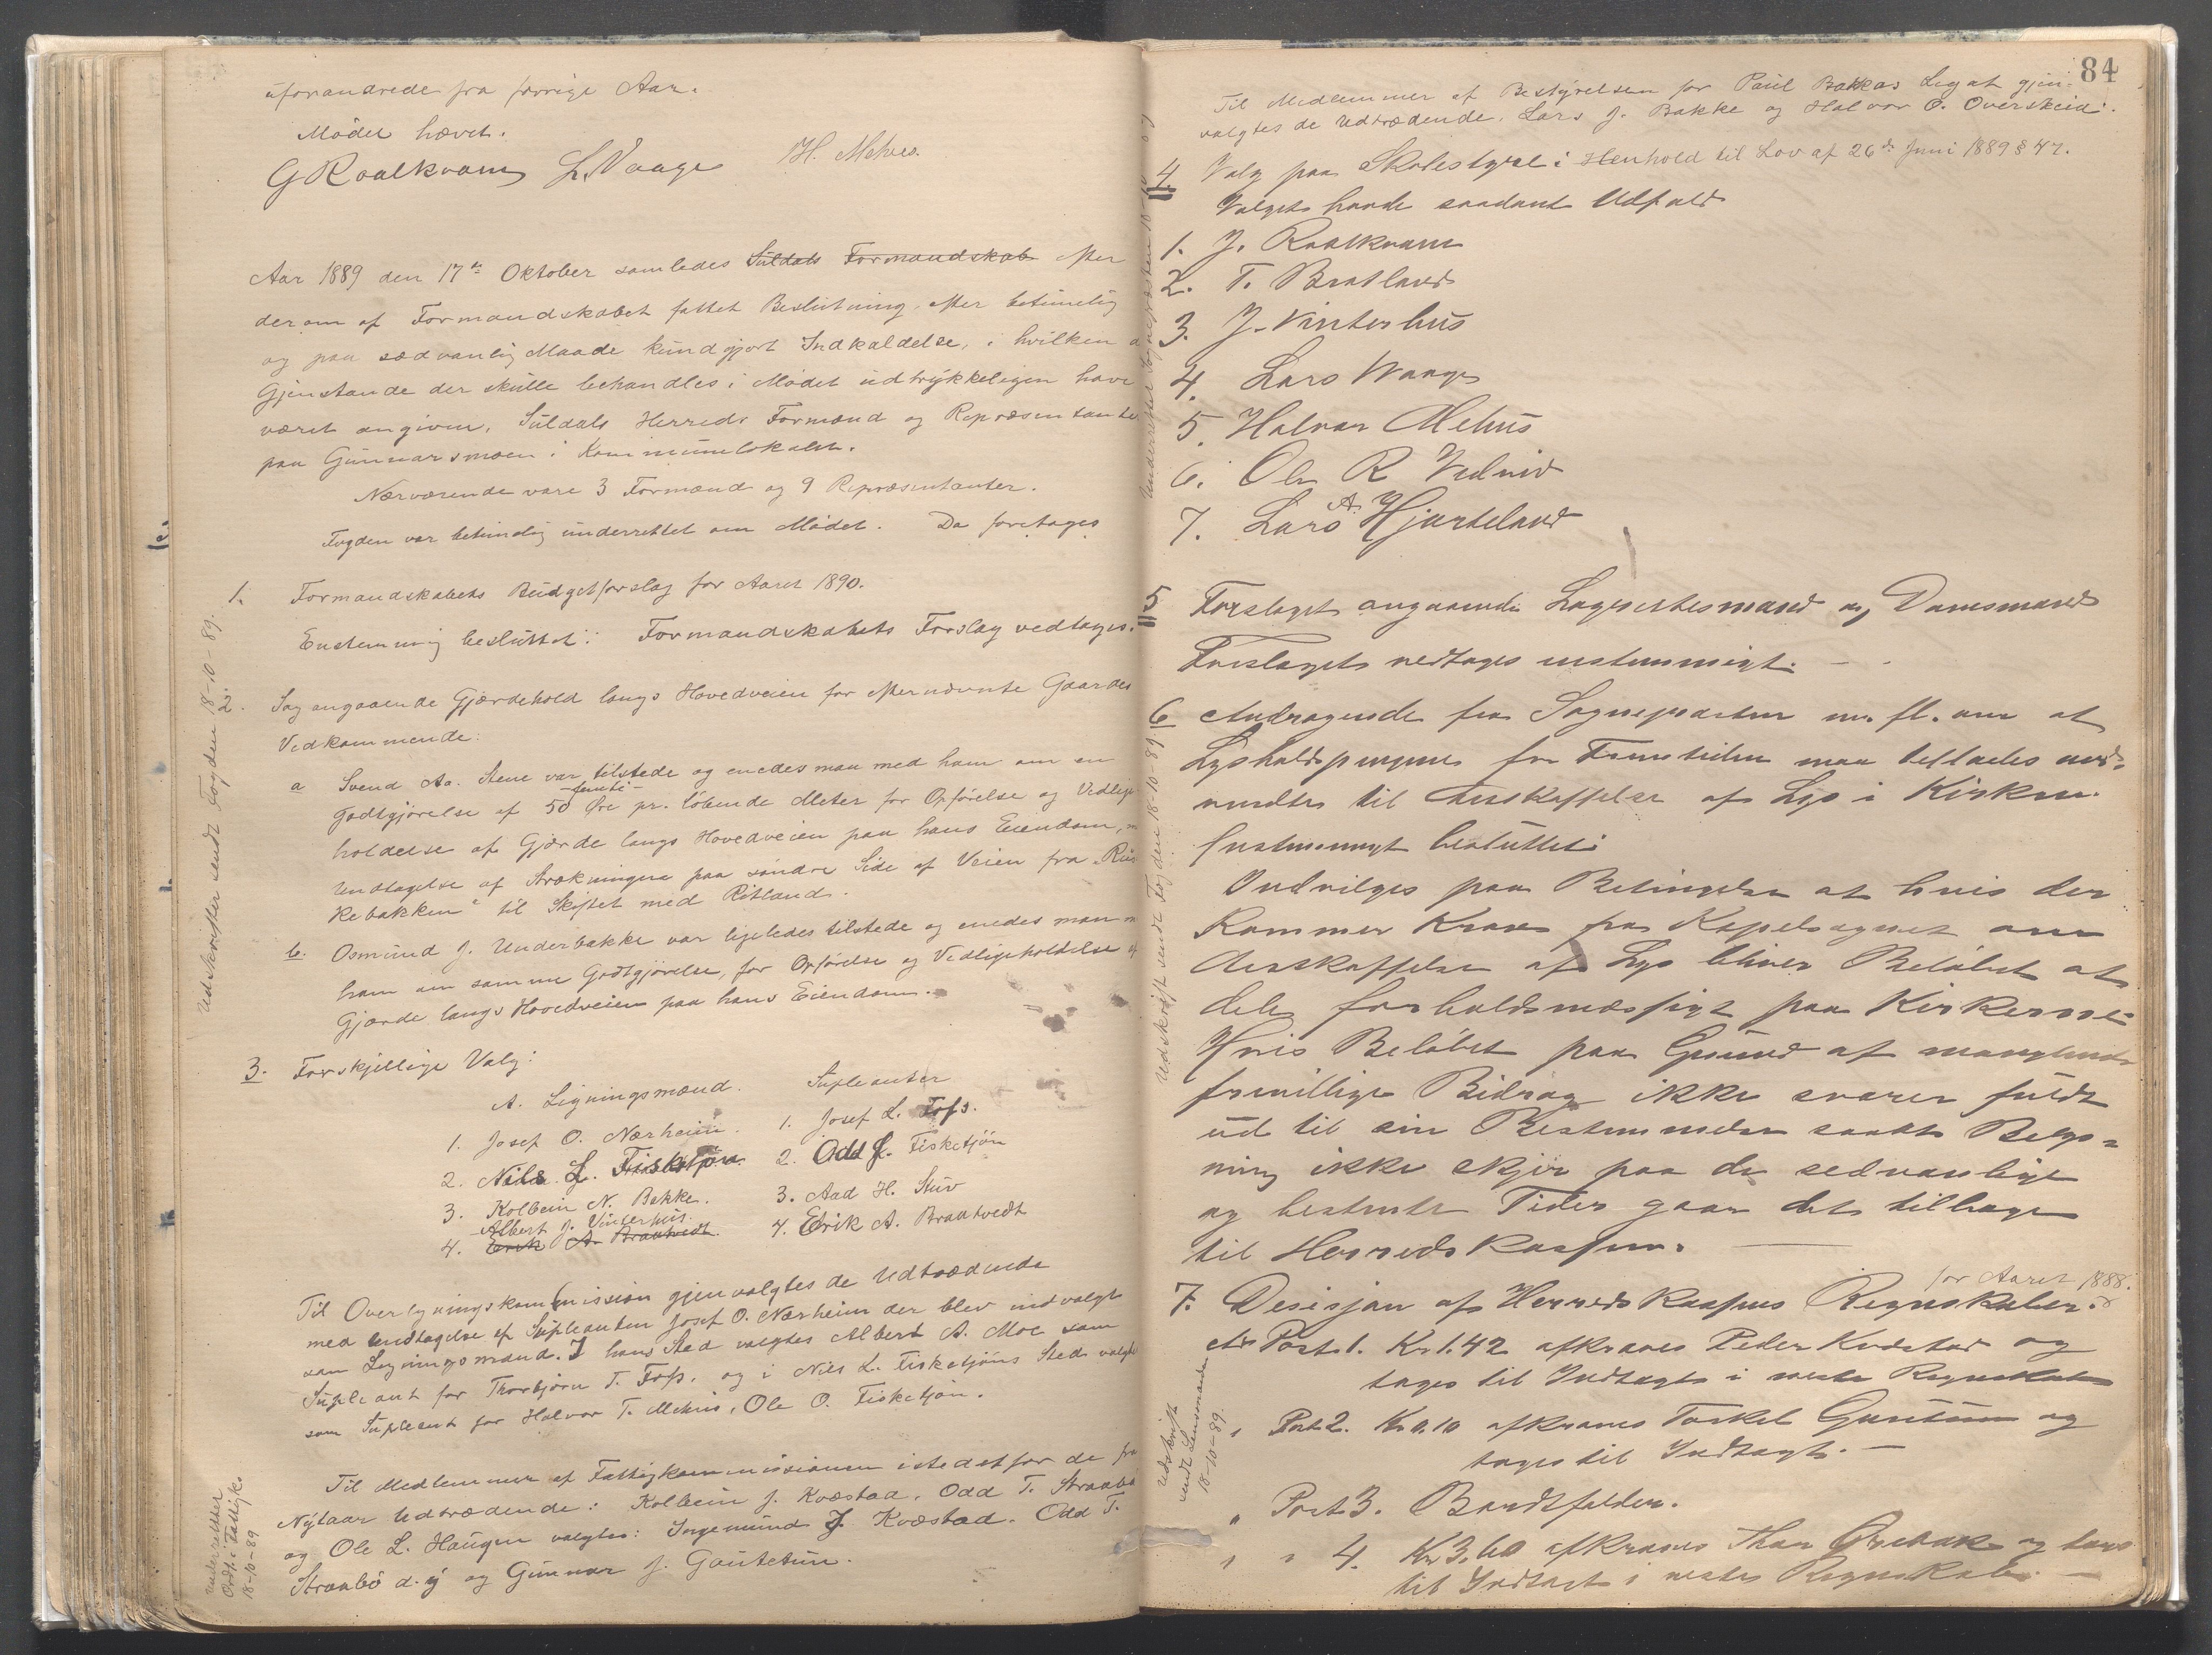 uforandrede fra forrige Aar.
Mødet hævet.
G Roalkvam L. Vaage H. Mehus.
Aar 1889 den 17de Oktober samledes Suldals Formandskab efter
derom af Formandskabet fattet Beslutning efter betimelig
og paa sædvanlig Maade kundgjort Indkaldelse, i hvilken
Gjenstande der skulle behandles i Mødet udtrykkeligen have
været angiven, Suldals Herreds Formænd og Repræsentanter
paa Gunnarsmoen i Kommunelokalet.
Nærværende vare 3 Formænd og 9 Repræsentanter.
Fogden var betimelig underrettet om Mødet. Da foretages
1. Formandskabets Budgetforslag for Aaret 1890.
Enstemmig besluttet: Formandskabets Forslag vedtages.
Udskrifter sendt Fogden 18-10-89.
2. Sag angaaende Gjærdehold langs Hovedveien for efternævnte Gaardes
Vedkommende:
a Svend Aa. Stene var tilstede og enedes man med ham om en
-femti-
Godtgjørelse af 50 Øre pr. løbende Meter for Opførelse og Vedlige
holdelse af Gjærde langs Hovedveien paa hans Eiendom, m
Undtagelse af Strækningen paa søndre Side af Veien fra „Rus
kebakken“ til Skiftet med Ritland.
b. Osmund J. Underbakke var ligeledes tilstede og enedes man m
ham om samme Godtgjørelse, for Opførelse og Vedligeholdelse af
Gjærde langs Hovedveien paa hans Eiendom.
3. Forskjellige Valg:
A. Ligningsmænd. Supleanter
1. Josef O. Nærheim. 1. Josef L. Foss.
2. Nils L. Fisketjøn. 2. Odd J. Fisketjøn
3. Kolbein N. Bakke. 3. Aad H. Stuv
Albert J. Vinterhus.
4. Erik A. Braatvedt 4. Erik A. Braatvedt
Til Overligningskommission gjenvalgtes de Udtrædende
med Undtagelse af Supleanten Josef O. Nærheim der blev indvalgt
som Ligningsmand. I hans Sted valgtes Albert A. Moe som
Supleant for Thorbjørn T. Foss. og i Nils L. Fisketjøns Sted valgtes
som Supleant for Halvor T. Mehus, Ole O. Fisketjøn.
Til Medlemmer af Fattigkommissionen istedetfor de fra
Nytaar Udtrædende: Kolbein J. Kvæstad. Odd T. Straabø
og Ole L. Haugen valgtes: Ingemund J. Kvæstad. Odd T.
Straabø d. y og Gunnar J. Gautetun.
underrettet
Ordf. i Fattigk.
18-10-89
84
Til Medlemmer af Bestyrelsen for Paul Bakkas Legat gjen-
valgtes de Udtrædende, Lars J. Bakke og Halvor O. Overskeid.
4. Valg paa Skolestyre i Henhold til Lov af 26de Juni 1889 § 47.
Valgets havde saadant Udfald
1. J. Roalkvam
2. T. Bratland
3. J. Vinterhus
4. Lars Waage
5. Halvor Mehus
6. Ole R Vedvik
7. Lars A. Hjorteland
5 Forslaget angaaende Lagrettesmænd og Domsmænd
Forslaget vedtages enstemmigt.
6 Andragende fra Sognepresten m. fl. om at
Lysholdspengene for Fremtiden maa tillades an-
vendtes til Anskaffelse af Lys i Kirken.
Enstemmigt besluttet:
Indvilges paa Betingelse at hvis der
kommer Krav fra Kapelsognet om
Anskaffelse af Lys bliver Beløbet at
dele forholdsmæssigt paa Kirkerne
Hvis Beløbet paa Grund af manglende
frivillige Bidrag ikke svarer fuldt
ud til sin Bestemmelse saa at Belys-
ning ikke skjer paa de sedvanlige
og bestemte Tider gaar det tilbage
til Herredskassen.
Udskrift sendt Fogden 18-10-89
7. Desisjon af Herredskassens Regnskaber for Aaret 1888.
Ad Post 1. Kr 1.42 afkræves Peder Kvæstad og
tages til Indtægt i neste Regnskab
„ Post 2. Kr 0.10 afkræves Torkel Gautetun og
tages til Indtægt.
„ Post 3. Bortfalder.
„ „ 4. Kr 3.60 afkræves Thor Ørebak og tages
til Indtægt i neste Regnskab.
Udskrift
sendt Lensmanden
18-10-89.